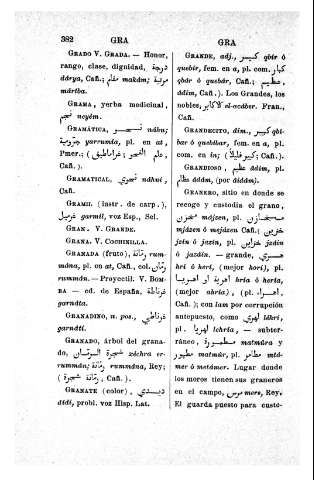 382 GRA
GRA
GRADO V. GRADA. — Honor,
rango, clase, dignidad, درجة
dárya, Cañ.; مقام makám; مرتبة
mártba.
GRAMA, yerba medicinal,
نجيم noyém.
GRAMÁTICA, نحو náhu;
yarrumía, pl. en at,
Pmer.; (علم النحو; غراماطيق,
Cañ.).
GRAMATICAL, نحوي náhui,
Cañ.
GRAMIL (instr. de carp.),
غرميل garmil, voz Esp., Sel.
GRAN. V. GRANDE.
GRANA. V. COCHINILLA.
GRANADA (fruto), رمانة rum-
mána, pl. en at, Cañ., col. رمان
rummán.—Proyectil. V. BOM-
BA — cd. de España, غرناطة
garnáta.
GRANADINO, n. pos., غرناطي
garnáti.
GRANADO, árbol del grana-
do, شجرة الرمان xáchra er-
rummán; رمانة rummána, Rey;
(شجرة رمانة, Cañ.).
GRANATE (color), ديدي
dídi, probl. voz Hisp. Lat.
GRANDE, adj., كبير qbír ó
quebír, fem. en a, pl. com. كبار
qbár ó quebár, Cañ.; عظيم
ádim, Cañ.). Los Grandes, los
nobles, الاكابر el-acáber. Fran.,
Cañ.
GRANDECITO, dim., qbí-
bar ó quebíbar, fem. en a, pl.
com. en in; (كبير قليلا; Cañ.).
GRANDIOSO, عظيم ádim, pl.
عظام ddám, (por áiddám).
GRANERO, sitio en donde se
recoge y custodia el grano,
مخزن mójzen, pl. مخازن
mjázen ó mejázen Cañ.; خزين
jzín ó jazín, pl. خزاين jzáin
ó jazáin. — grande, هري
hrí ó herí, (mejor horí), pl.
اهرية او اهريا hría ó hería,
(mejor ahría), (pl. اهراء,
Cañ.); con lam por corrupción
antepuesto, como لهري láhri,
pl. لهريا lehría, — subter-
ráneo, مطمورة matmúra y
مطمور matmúr, pl. مطامر mtá-
mer ó metámer. Lugar donde
los moros tienen sus graneros
en el campo, مرس mers, Rey.
El guarda puesto para custo-